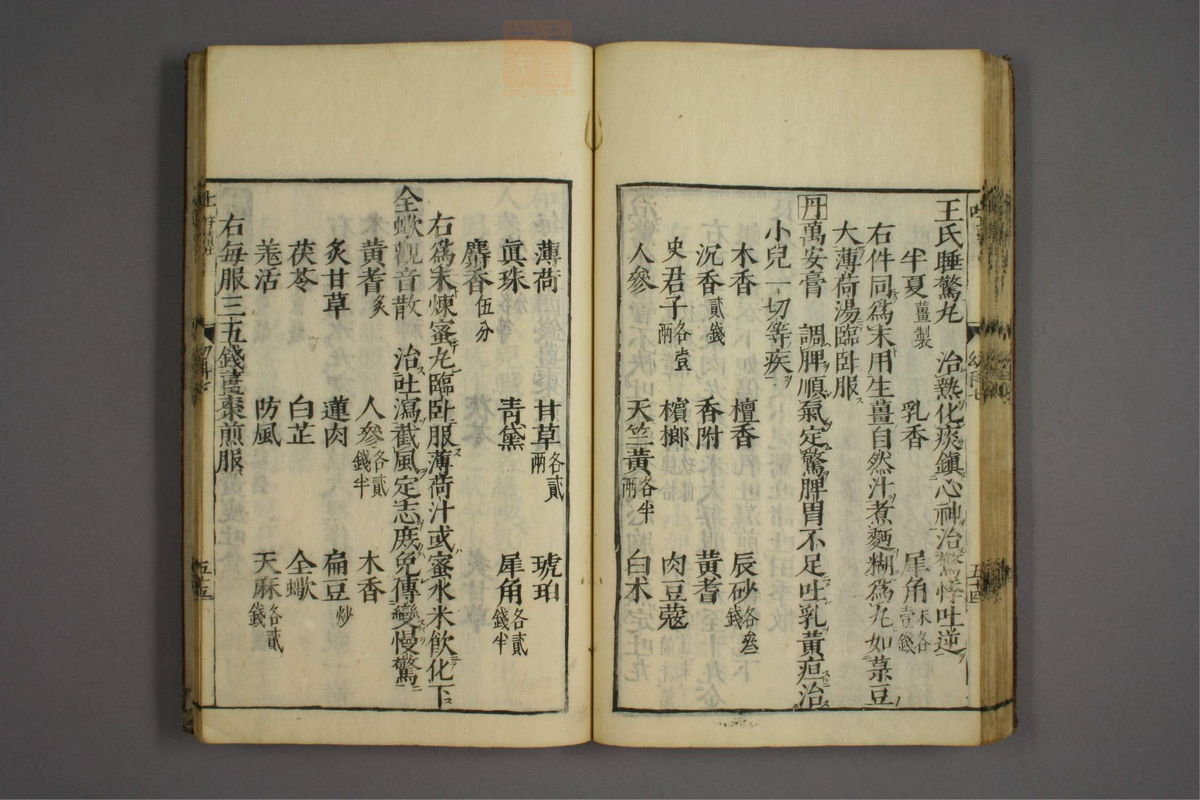 王氏睡驚丸　治熱化痰鎮心神治驚悸吐逆
半夏薑製　乳香　犀角末各壹錢
右件同爲末用生薑自然汁煮麵糊爲丸如菉豆
大薄荷湯臨卧服
丹萬安膏　調脾順氣定驚脾胃不足吐乳黃疸治
小兒一切等疾
木香　檀香　辰砂各叄錢
沉香貳錢　香附　黃耆
史君子各壹兩　檳榔　肉豆蔻
人參　天竺黃各半兩　白朮
薄荷　甘草各貳兩　琥珀
眞珠　靑黛　犀角各貳錢半
麝香伍分
右爲末煉蜜丸臨卧服薄荷汁或蜜水米飮化下
全蠍觀音散　治吐瀉截風定志庶免傳變慢驚
黃耆炙　人參各貳錢半　木香
炙甘草　蓮肉　扁豆炒
茯苓　白芷　全蠍
羗活　防風　天麻各貳錢
右每服三五錢薑棗煎服